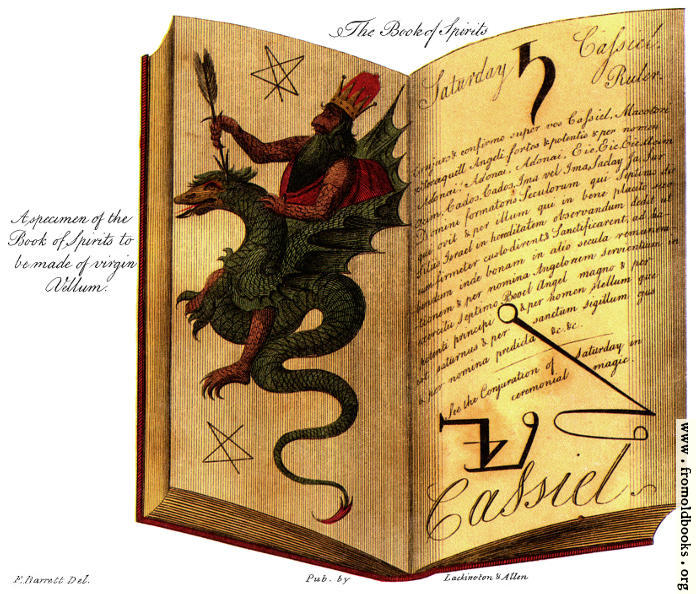 The Book of Spirits
A specimen of the
Book of Spirits to
be made of virgin
Vellum.
Saturday ♄ Cassiel.
Ruler.
Conjuro & confirmo super vos Cafsiel,
Angeli fortes & potentis & per nomen
Adonai, Adonai, Adonai, Eie, Eie, Eie,
Cados, Cados, Ima vel Ima, Saday
Domini formatoris Seculorum qui Septimo die
& per illum qui in bene placito suo
Israel in hoeditatem observandum dedit ut
firmeter custodirents Sanctificarent, ad ha
inde bonam in alio secula remunera
tionem & per nomina Angelorum servientium in
exercitu septimo Booel Angel magno & per
potenti principi & per homen stellum que
est saturnus & per sanctum sigillum qus
& per nomina predicta &c. &c.
See the Conjuration of Saturday in
ceremonial magic.
Cassiel.
F. Barrett Del.
Pub. by Lackington & Allen
www.fromoldbooks.org